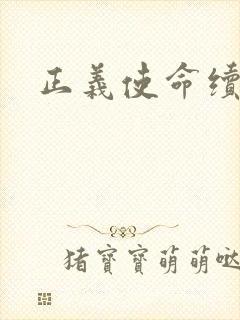 正義使命續
猪寶寶萌萌哒